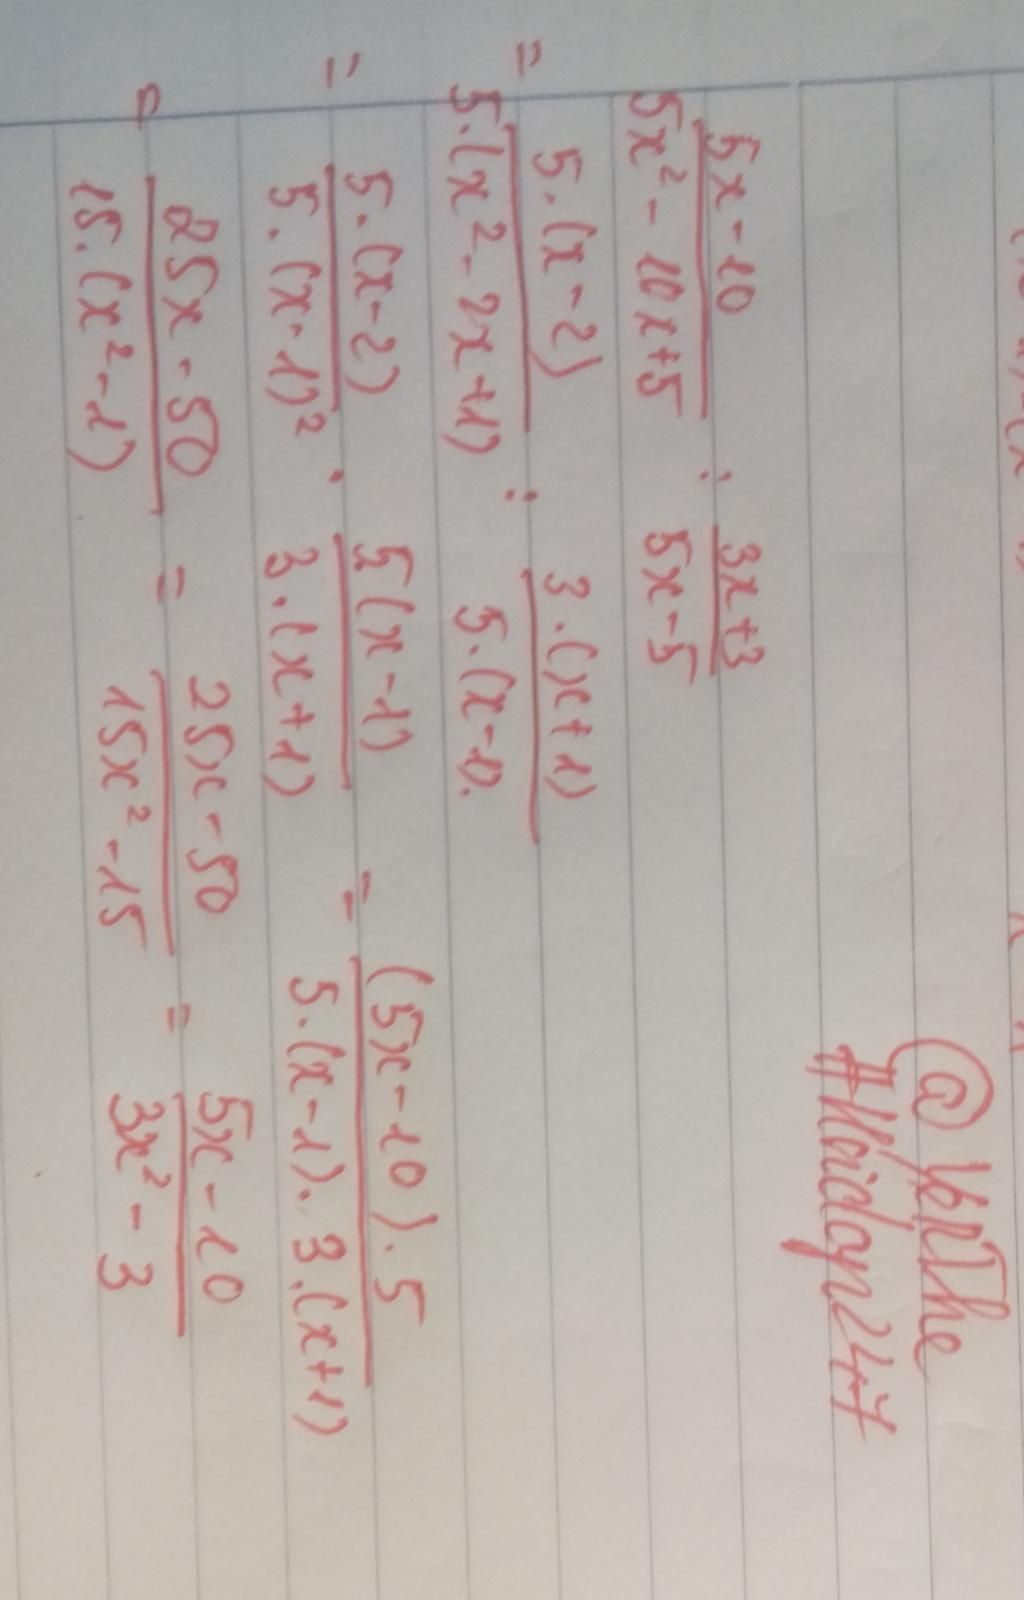 @ VopThe
#Hoidap247
5x-10 / 5x² - 10x+5 : 3x+3 / 5x-5
= 5.(x-2) / 5.(x²-2x+1) : 3.(x+1) / 5.(x-1).
= 5.(x-2) / 5.(x-1)² . 5(x-1) / 3.(x+1) = (5x-10).5 / 5.(x-1).3.(x+1)
= 25x-50 / 15.(x²-1) = 25x-50 / 15x²-15 = 5x-10 / 3x²-3